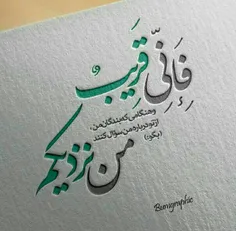 فَإِنِّي قَرِيبٌ
وهنگامی که بندگان من،
از تو درباره من سؤال کنند
(بگو:)
من نزدیکم
Bonigraphic